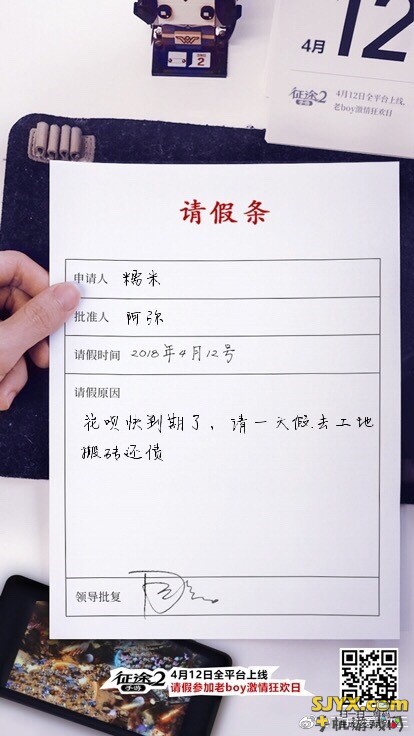 4月
12
征途2
手游
4月12日全平台上线
老boy激情狂欢日
请假条
申请人 糯米
批准人 阿弥
请假时间 2018年4月12号
请假原因
花呗快到期了，请一天假去工地
搬砖还债
领导批复
征途2
手游
4月12日全平台上线
请假参加老boy激情狂欢日
SJYX.com
手机游戏网